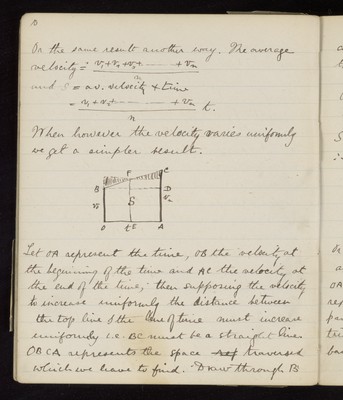 Or the same result another way. The average
velocity = v₁+v₂+v₃+ ........ +vₙ
n
and S = av. velocity × time
= v₁+v₂+ ........ +vₙ t.
n
When however the velocity varies uniformly
we get a simpler result.
F C
B D
v₁ S vₙ
O t E A
Let OA represent the time, OB the velocity at
the beginning of the time and AC the velocity at
the end of the time; then supposing the velocity
to increase uniformly the distance between
the top line & the line of time must increase
uniformly i.e. BC must be a straight line
OBCA represents the space traversed
which we have to find. Draw through B